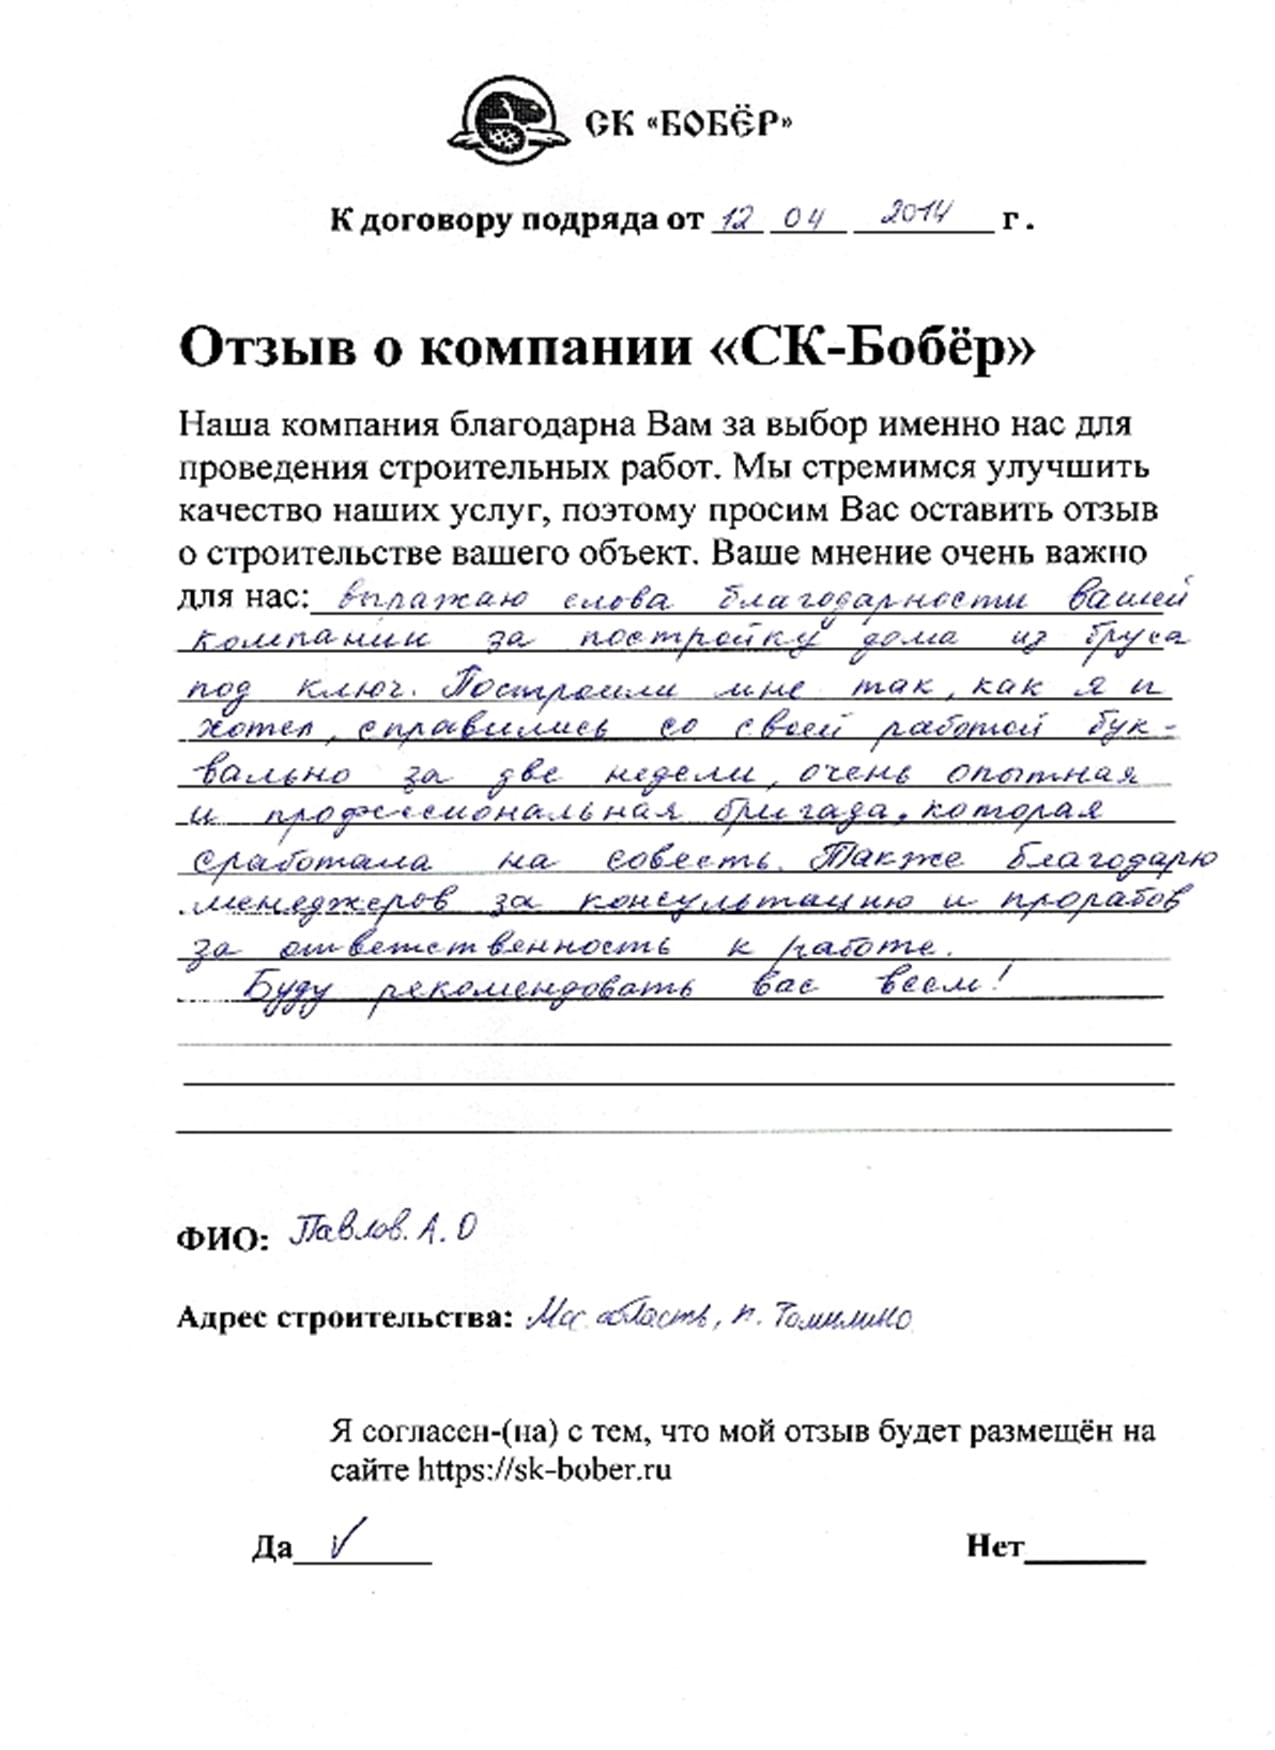 СК «БОБЁР»
К договору подряда от 12 04 2014 г.
Отзыв о компании «СК-Бобёр»
Наша компания благодарна Вам за выбор именно нас для
проведения строительных работ. Мы стремимся улучшить
качество наших услуг, поэтому просим Вас оставить отзыв
о строительстве вашего объект. Ваше мнение очень важно
для нас: выражаю слова благодарности вашей
компании за постройку дома из бруса
под ключ. Построили мне так, как я и
хотел, справились со своей работой бук-
вально за две недели, очень опытная
и профессиональная бригада, которая
сработала на совесть. Также благодарю
менеджеров за консультацию и прорабов
за ответственность к работе.
Буду рекомендовать вас всем!
ФИО: Павлов. А. О
Адрес строительства: Мос область, п. Томилино
Я согласен-(на) с тем, что мой отзыв будет размещён на
сайте https://sk-bober.ru
Да ✓ Нет